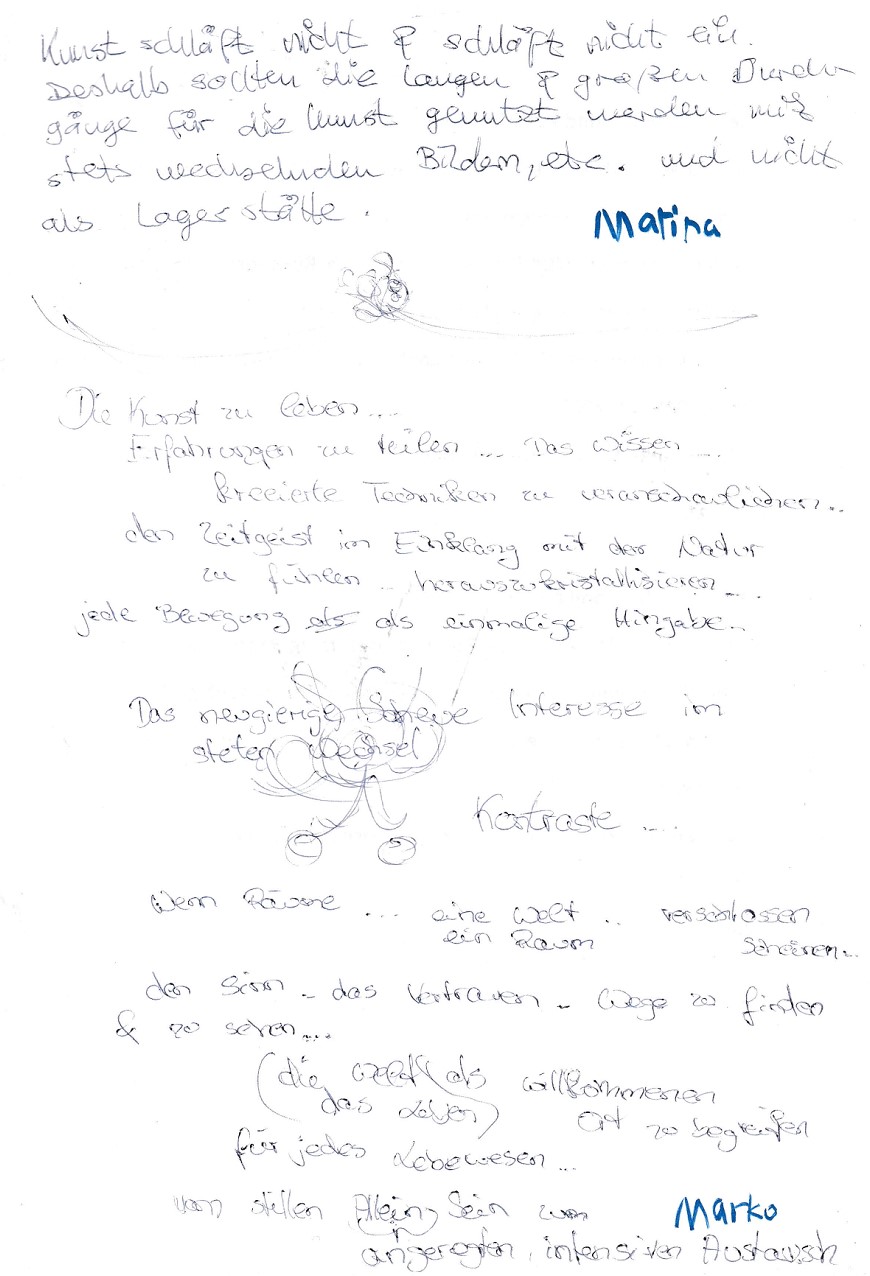 Kunst schläft nicht & schläft nicht ein.
Deshalb sollten die langen & großen Durch-
gänge für die Kunst genutzt werden mit
stets wechselnden Bildern, etc. und nicht
als Lagerstätte.
Marina
Die Kunst zu leben...
Erfahrungen zu teilen ... Das Wissen ...
kreeierte Techniken zu veranschaulichen...
den Zeitgeist im Einklang mit der Natur
zu fühlen .. herauszukristallisieren ...
jede Bewegung als als einmalige Hingabe..
Das neugierige, Scheue Interesse im
steten Wechsel
Kontraste ...
Wenn Räume ... eine Welt .. verschlossen
ein Raum scheinen...
den Sinn - das Vertrauen - Wege zu finden
& zu sehen...
(die Welt als willkommenen
das Leben) Ort zu begreifen
für jedes Lebewesen...
vom stillen Allein Sein zum
Marko
angeregten, intensiven Austausch